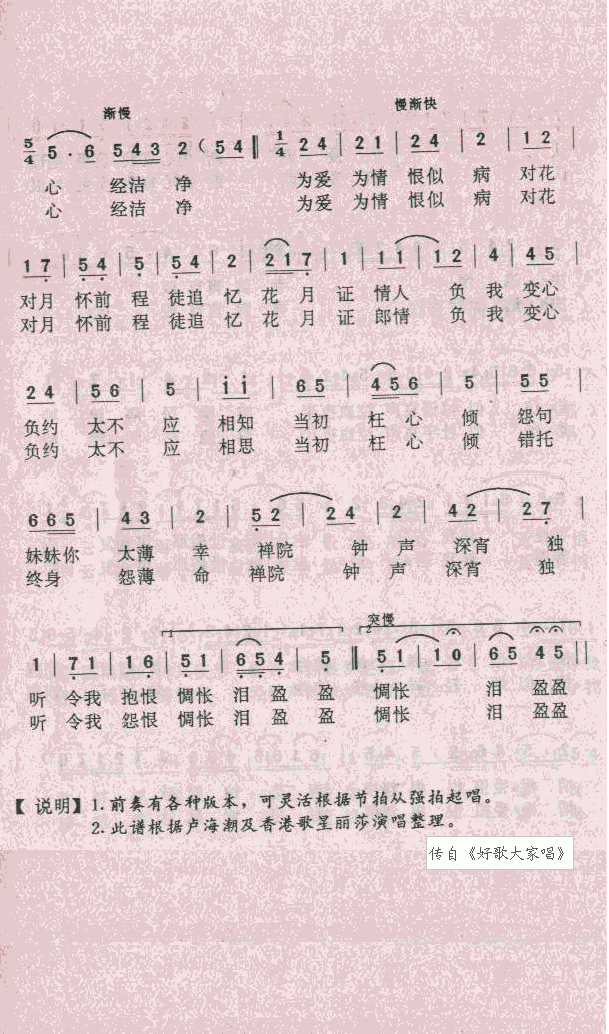 渐慢 慢渐快
5/4 5 · 6 5 4 3 2 ( 5 4 ‖ 1/4 2 4 | 2 1 | 2 4 | 2 | 1 2 |
心 经洁 净 为爱 为情 恨似 病 对花
心 经洁 净 为爱 为情 恨似 病 对花
1 7 | 5 4 | 5 | 5 4 | 2 | 2 1 7 | 1 | 1 1 | 1 2 | 4 | 4 5 |
对月 怀前 程 徒追 忆 花 月 证 情人 负 我 变心
对月 怀前 程 徒追 忆 花 月 证 郎情 负 我 变心
2 4 | 5 6 | 5 | i i | 6 5 | 4 5 6 | 5 | 5 5 |
负约 太不 应 相知 当初 枉 心 倾 怨句
负约 太不 应 相思 当初 枉 心 倾 错托
6 6 5 | 4 3 | 2 | 5 2 | 2 4 | 2 | 4 2 | 2 7 |
妹妹你 太薄 幸 禅院 钟 声 深宵 独
终身 怨薄 命 禅院 钟 声 深宵 独
1 2 突慢
1 | 7 1 | 1 6 | 5 1 | 6 5 4 | 5 ‖ 5 1 | 1 0 | 6 5 4 5 ||
听 令我 抱恨 惆怅 泪 盈盈 盈 惆怅 泪 盈盈
听 令我 怨恨 惆怅 泪 盈盈 盈 惆怅 泪 盈盈
【 说明】1. 前奏有各种版本，可灵活根据节拍从强拍起唱。
2. 此谱根据卢海潮及香港歌星丽莎演唱整理。
传自《好歌大家唱》